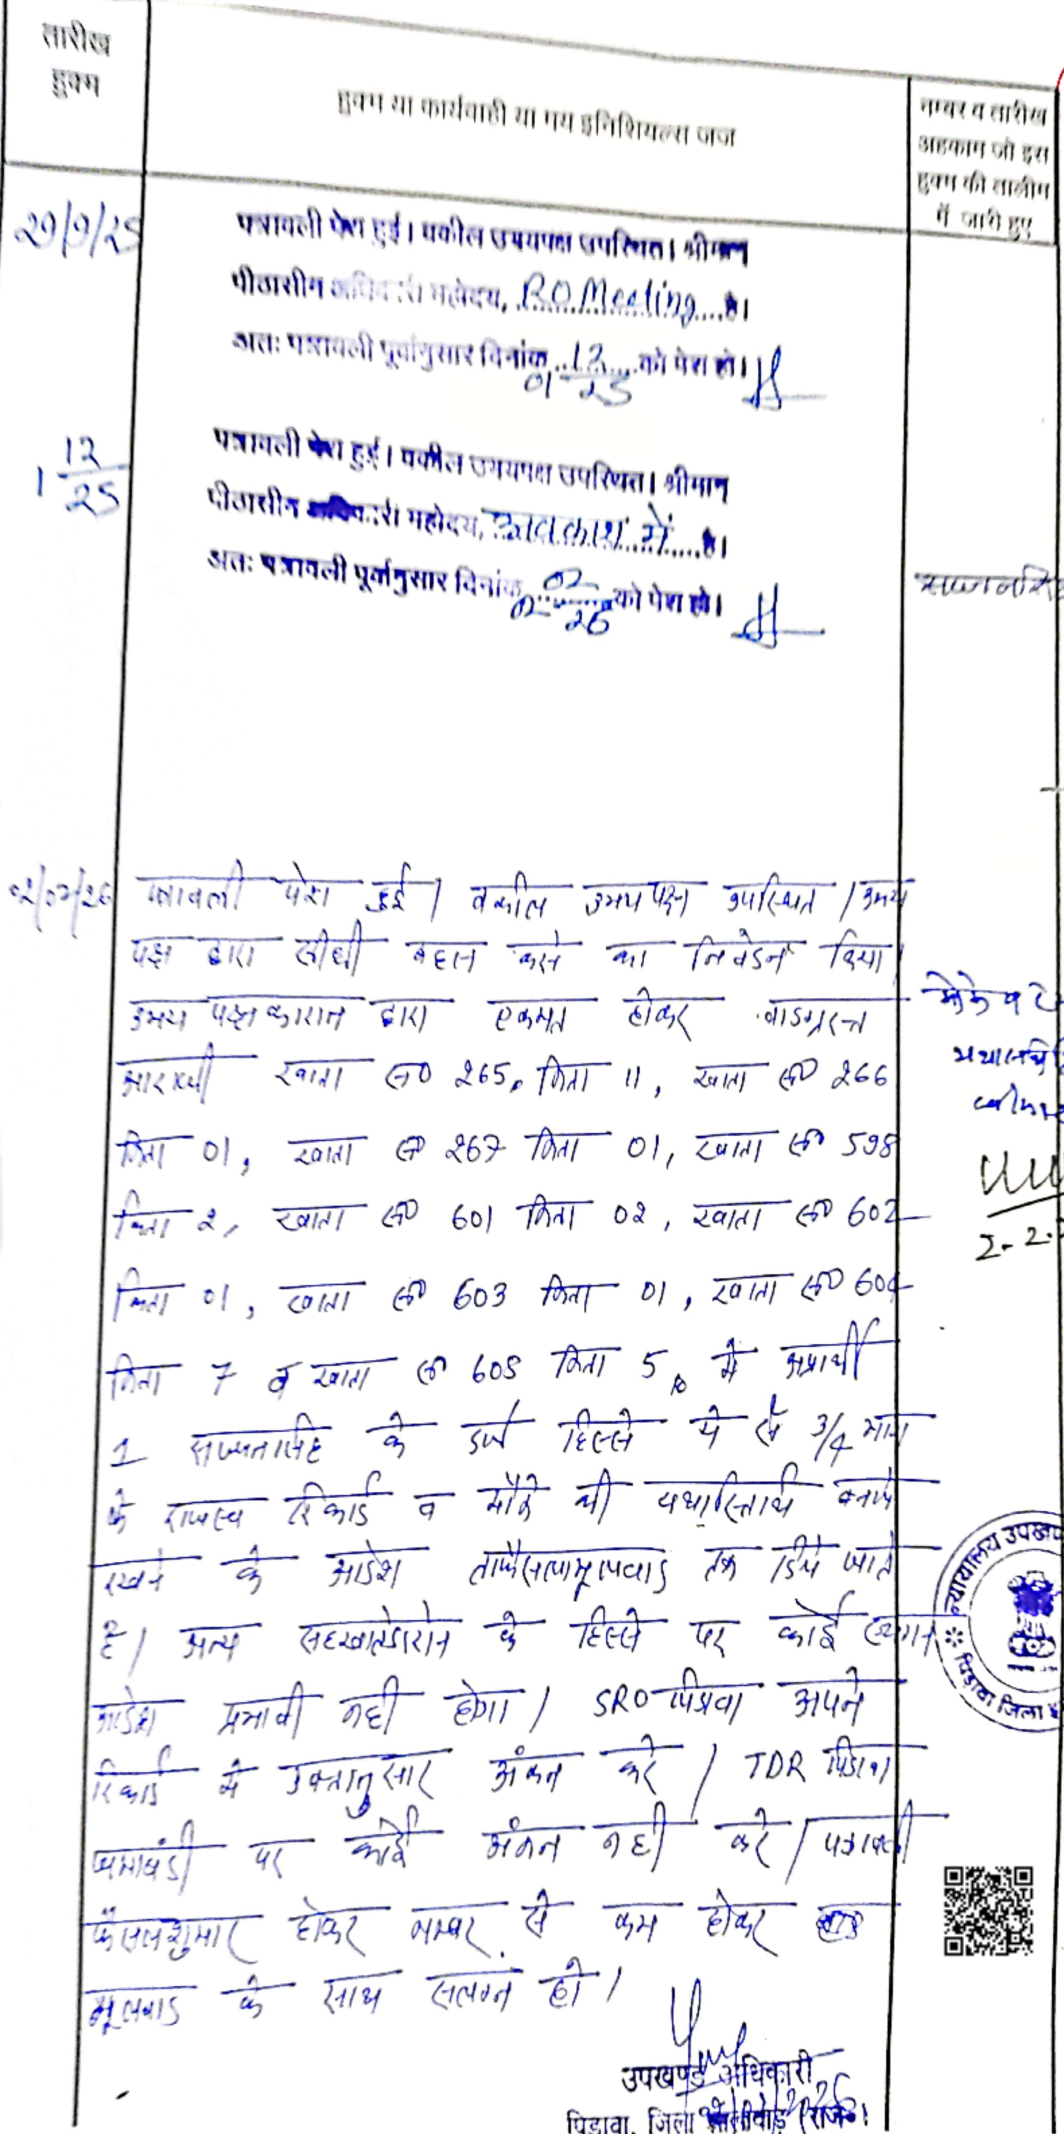 तारीख
हुक्म
हुक्म या कार्यवाही या मय इनिशियल्स जज
नम्बर व तारीख
अहकाम जो इस
हुक्म की तालीम
में जारी हुए
29/9/25
पत्रावली पेश हुई। वकील उभयपक्ष उपस्थित। श्रीमान्
पीठासीन अधिकारी महोदय, R.O Meeting है।
अतः पत्रावली पूर्वानुसार दिनांक 01 12/25 को पेश हो।
1 12/25
पत्रावली पेश हुई। वकील उभयपक्ष उपस्थित। श्रीमान्
पीठासीन अधिकारी महोदय, अवकाश में है।
अतः पत्रावली पूर्वानुसार दिनांक 02 02/26 को पेश हो।
02/02/26
पत्रावली पेश हुई। वकील उभय पक्ष उपस्थित। उभय
पक्ष द्वारा सीधी बहस करने का निवेदन किया।
उभय पक्षकारान द्वारा एकमत होकर वादग्रस्त
आराजी खाता सं० 265 किता 11, खाता सं० 266
किता 01, खाता सं० 267 किता 01, खाता सं० 598
किता 2, खाता सं० 601 किता 02, खाता सं० 602
किता 01, खाता सं० 603 किता 01, खाता सं० 604
किता 7 व खाता सं० 605 किता 5 में अप्रार्थी
1 सज्जनसिंह के दर्ज हिस्से में से 3/4 भाग
के राजस्व रिकार्ड व मौके की यथास्थिति बनाये
रखने के आदेश ताफैसला मूलवाद तक दिये जाते
है। अन्य सहखातेदारान के हिस्से पर कोई स्थगन
आदेश प्रभावी नही होगा। SRO पिडावा अपने
रिकार्ड में उक्तानुसार अंकन करे। TDR पिडावा
जमाबंदी पर कोई अंकन नही करे। पत्रावली
फैसलशुमार होकर नम्बर से कम होकर
मूलवाद के साथ संलग्न हो।
2-2-
न्यायालय उपखण्ड
पिड़ावा जिला
उपखण्ड अधिकारी
पिडावा, जिला झालावाड़ (राज०)